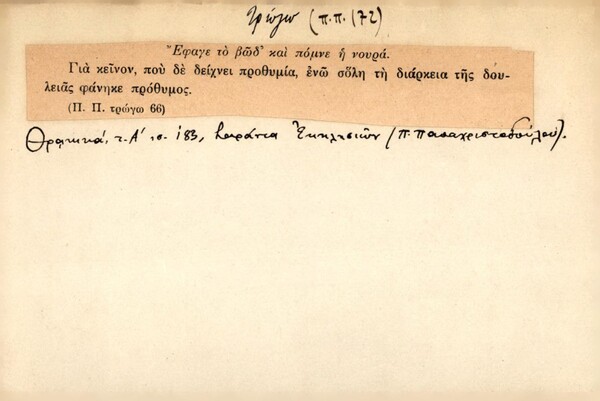 τρώγω (π.π. 172)
Ἔφαγε τὸ βῶδ' καὶ πόμνε ἡ νουρά.
Γιὰ κεῖνον, ποὺ δὲ δείχνει προθυμία, ἐνῶ σ' ὅλη τὴ διάρκεια τῆς δου-
λειᾶς φάνηκε πρόθυμος.
(Π. Π. τρώγω 66)
Θρακικά, τ. Α' σ. 183, Σαράντα Ἐκκλησιῶν (Π. Παπαχριστοδούλου).